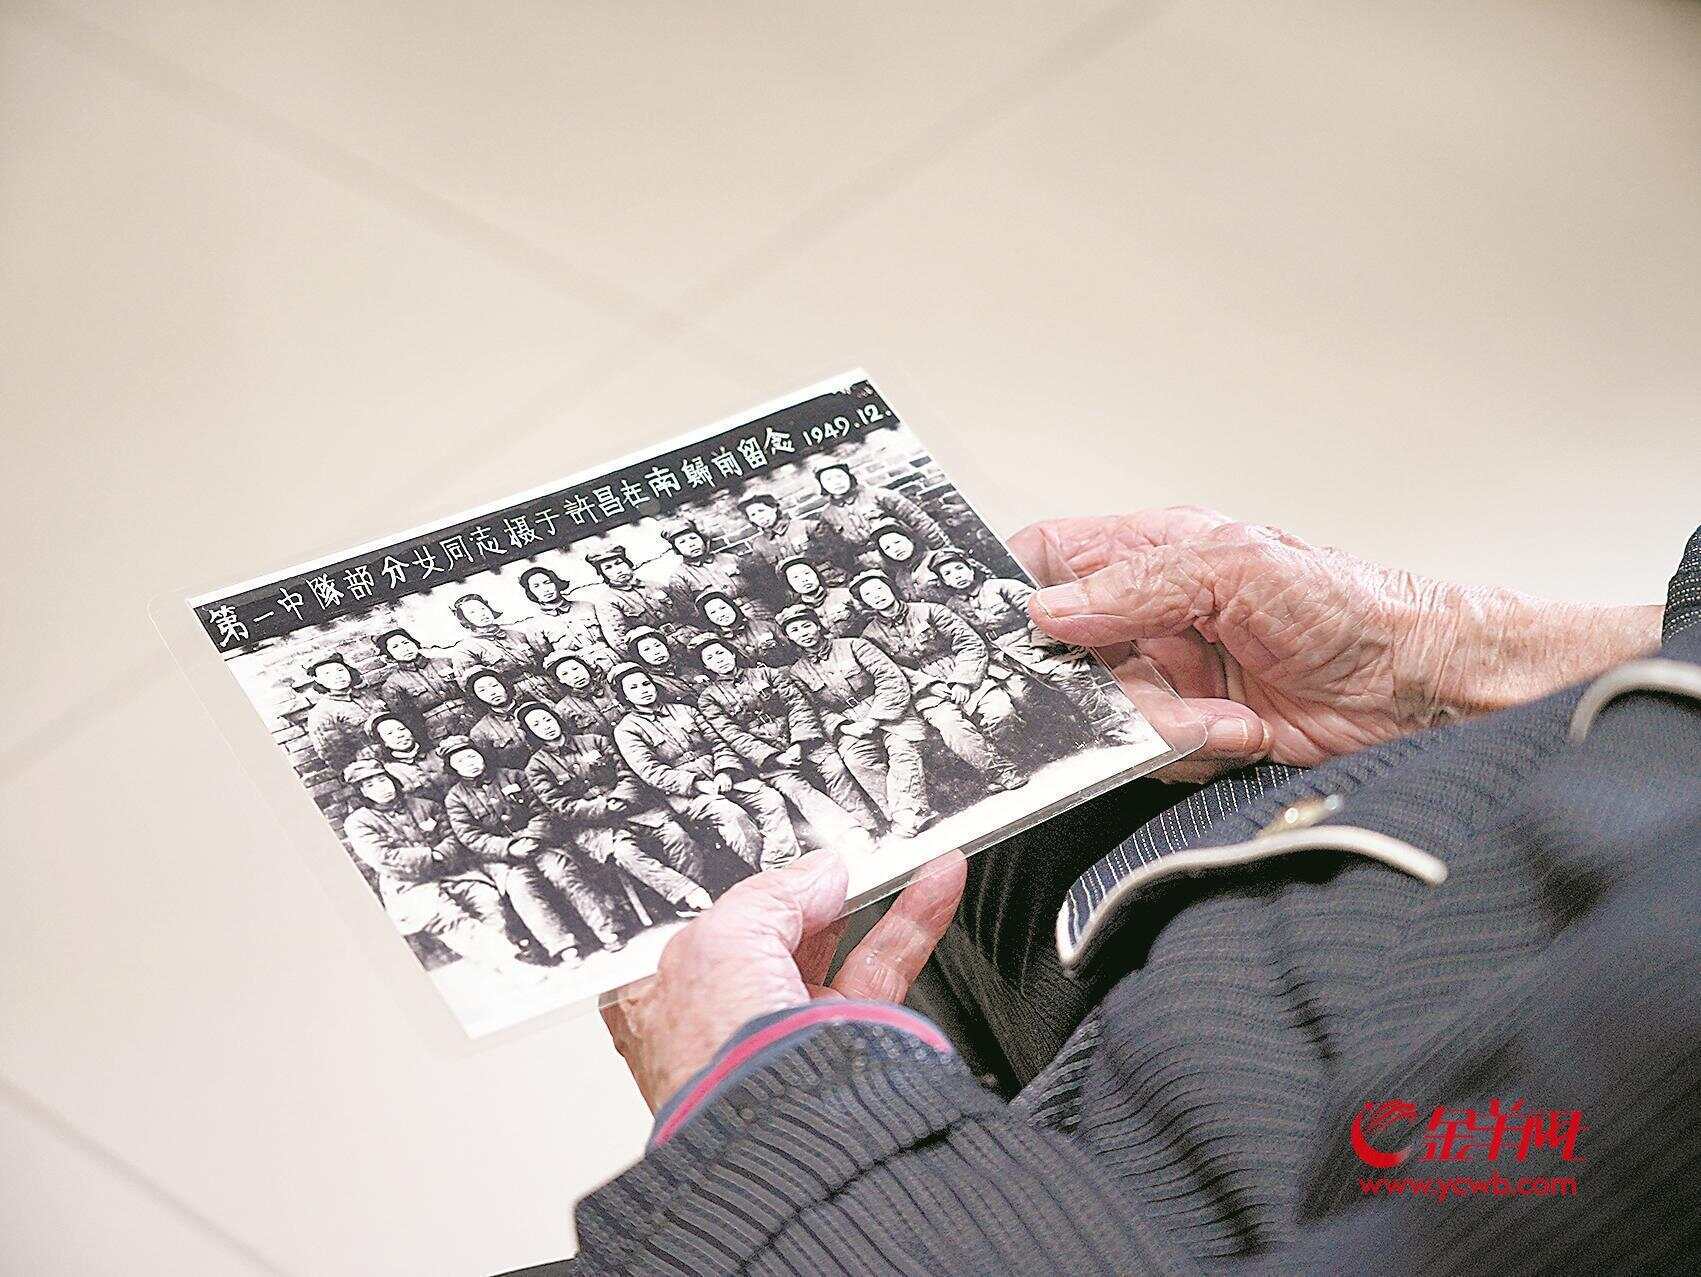 第一中隊部分女同志摄于許昌在南歸前留念 1949.12.
金羊网
www.ycwb.com